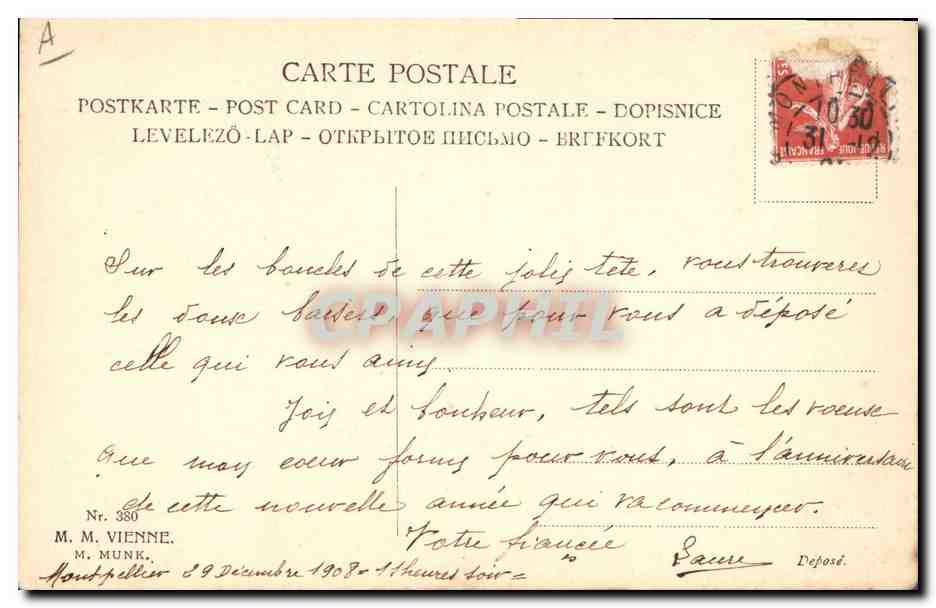 A
CARTE POSTALE
POSTKARTE – POST CARD – CARTOLINA POSTALE – DOPISNICE
LEVELEZŐ-LAP – ОТКРЫТОЕ ПИСЬМО – BREFKORT
10 30
31
FRANÇAISE
Sur les boucles de cette jolie tête, vous trouveres
les doux baisers, que pour vous a déposé
celle qui vous aime.
Joie et bonheur, tels sont les voeux
que mon coeur forme pour vous, à l'anniversaire
de cette nouvelle année qui va commencer.
Votre fiancée
Laure
CPAPHIL
Nr. 380
M. M. VIENNE.
M. MUNK.
Deposé.
Montpellier 29 Décembre 1908 = 11 heures soir =